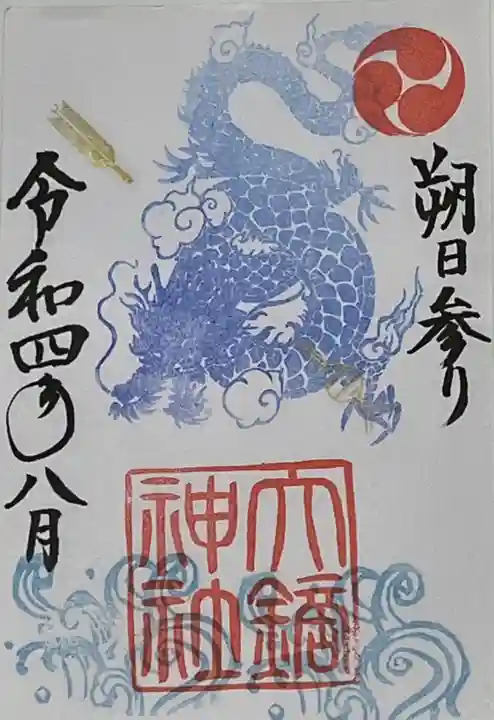 朔日参り
大鏑
神社
令和四年八月